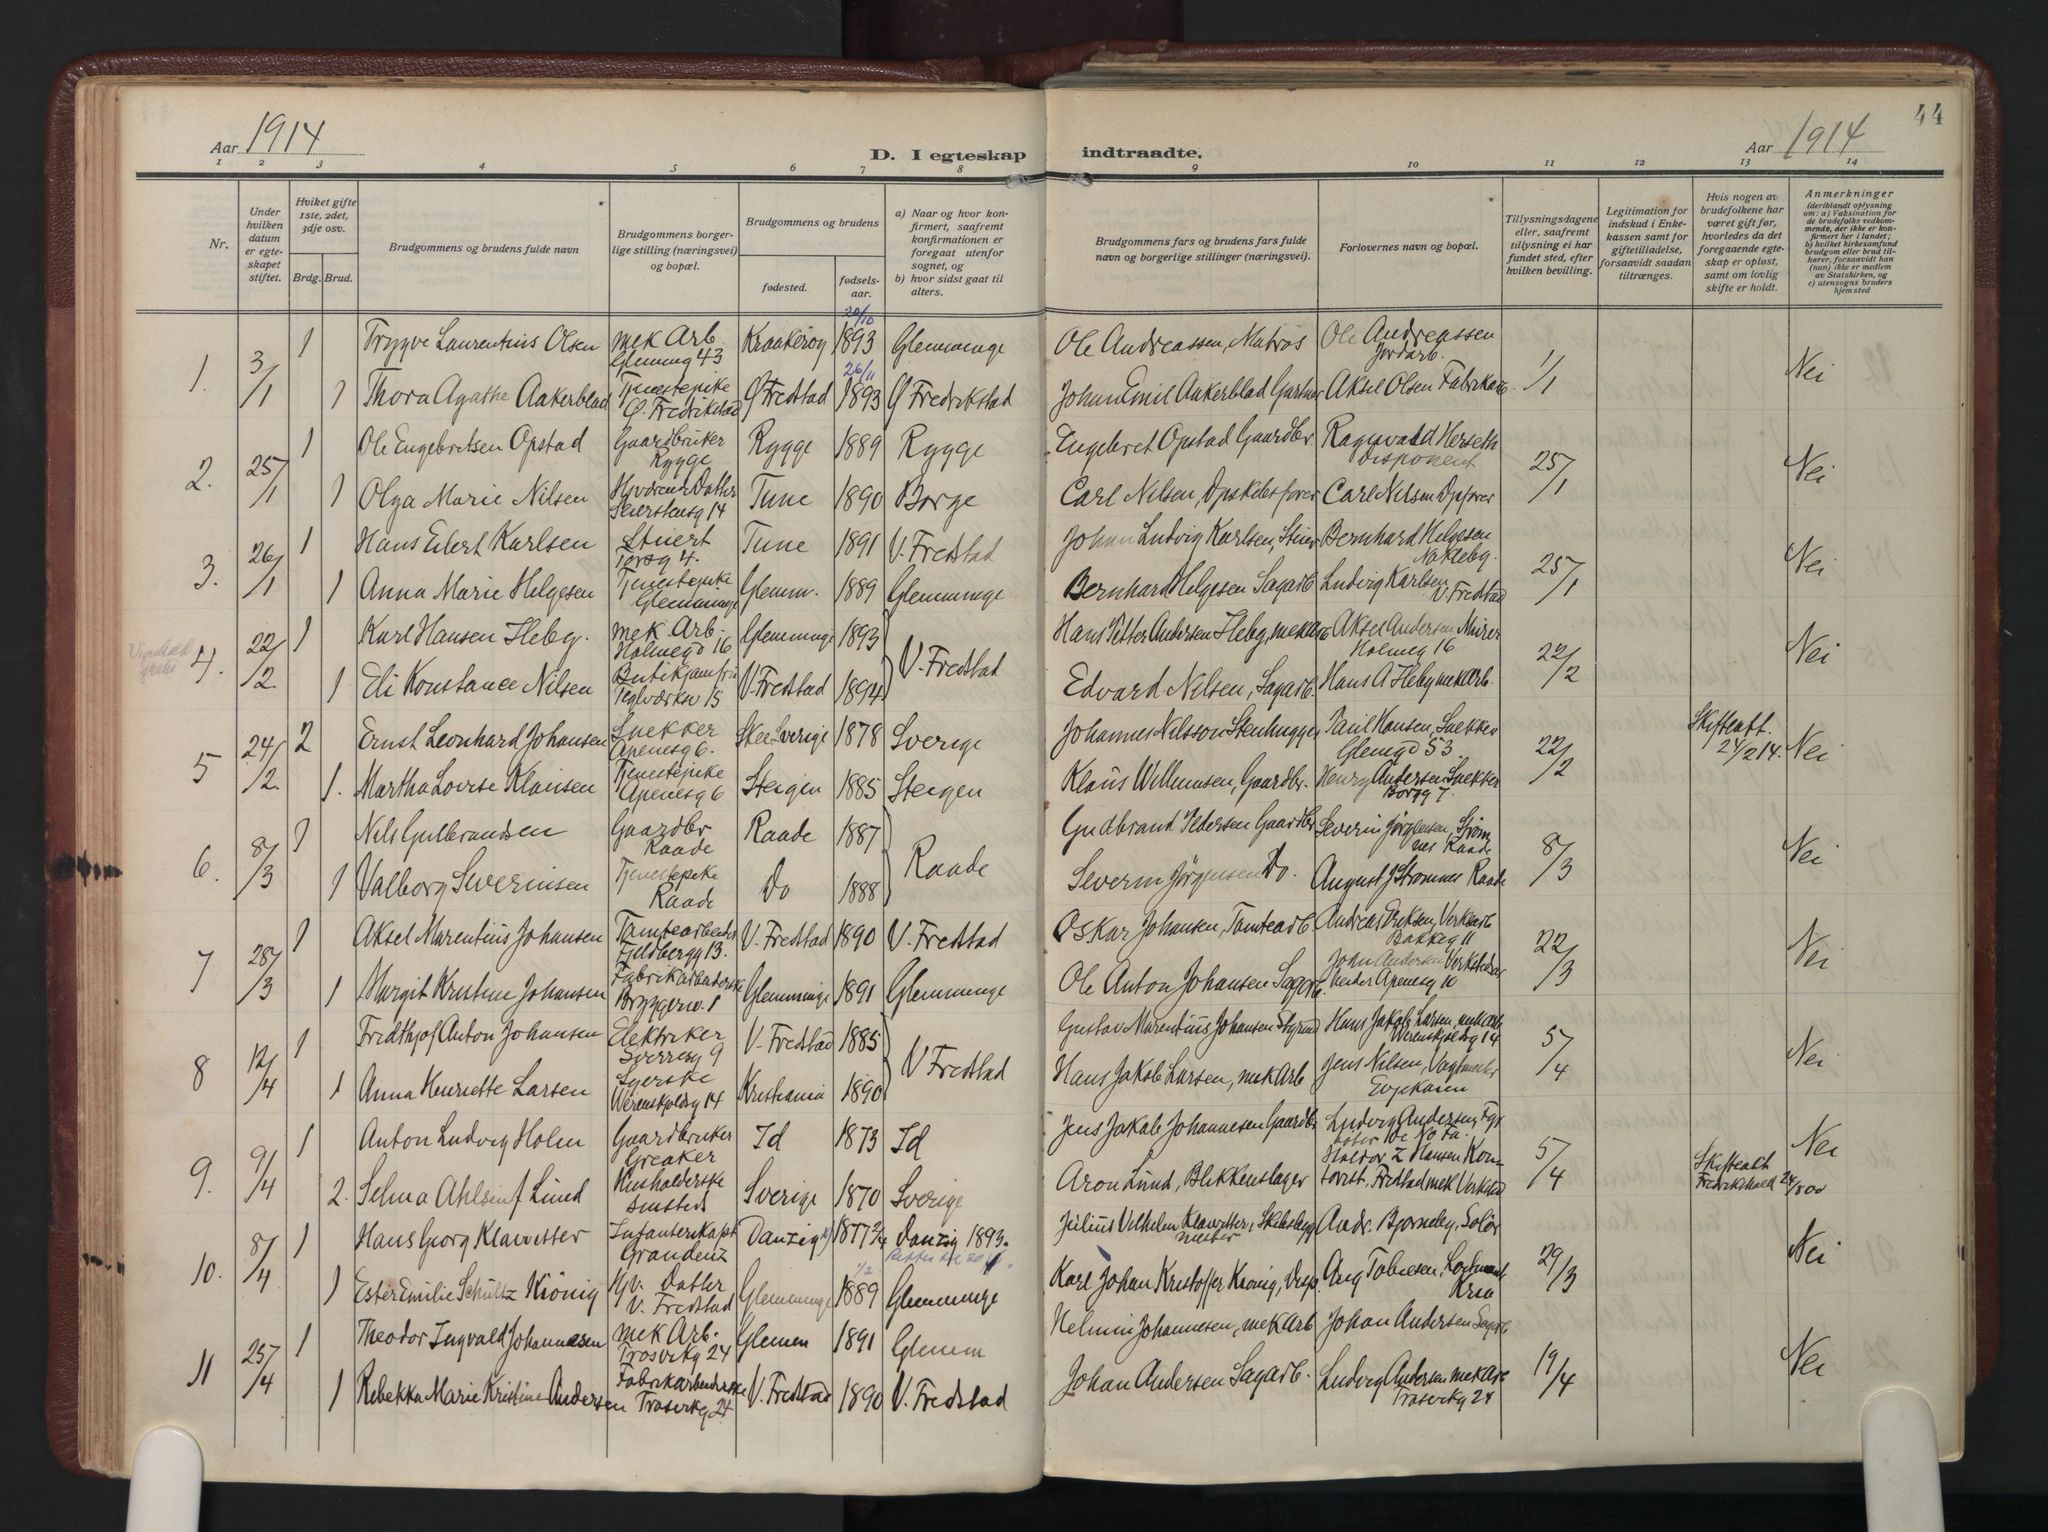 44
Aar 1914
D. I egteskap indtraadte.
Aar 1914
1 2 3 4 5 6 7 8 9 10 11 12 13 14
Nr.
Under hvilken datum er egteskapet stiftet.
Hviket gifte 1ste, 2det, 3dje osv.
Brdg. Brud.
Brudgommens og brudens fulde navn
Brudgommens borgerlige stilling (næringsvei) og bopæl.
Brudgommens og brudens
fødested.
fødselsaar.
a) Naar og hvor konfirmert, saafremt konfirmationen er foregaat utenfor sognet, og
b) hvor sidst gaat til alters.
Brudgommens fars og brudens fars fulde navn og borgerlige stillinger (næringsvei).
Forlovernes navn og bopæl.
Tillysningsdagene eller, saafremt tillysning ei har fundet sted, efter hvilken bevilling.
Legitimation for indskud i Enkekassen samt for giftetilladelse, forsaavidt saadan tiltrænges.
Hvis nogen av brudefolkene har været gift før, hvorledes da det foregaaende egteskap er opløst, samt om lovlig skifte er holdt.
Anmerkninger
(deriblandt oplysning om: a) Vaksination for de brudefolks vedkommende, der ikke er konfirmert her i landet; b) hvilket kirkesamfund brudgom eller brud tilhører, forsaavidt han (hun) ikke er medlem av Statskirken, og c) utensogns bruders hjemsted
1. 3/1 1 Trygve Laurentius Olsen mek Arb Glemmg 43 Kraakerøy 20/10 1893 Glemminge Ole Andreassen, Matros Ole Andreassen Jordarb. 1/1 Nei
1 Thora Agathe Aakerblad Tjenestepike Ø. Fredrikstad Ø Fredstad 26/11 1893 Ø Fredrikstad Johan Emil Aakerblad Gartner Aksel Olsen Fabrikarb
2. 25/1 1 Ole Engebretsen Opstad Gaardbruker Rygge Rygge 1889 Rygge Engebret Opstad Gaardbr. Ragnvald Herseth Disponent 25/1 Nei
1 Olga Marie Nilsen Tune 1890 Borge Carl Nilsen, Carl Nilsen
3. 26/1 1 Hans Edert Karlsen Stuert Torvg 4. Tune 1891 V. Fredstad Johan Ludvig Karlsen, Bernhard Helgesen Nøkleby. 25/1 Nei
1 Anna Marie Helgesen Tjenestepike Glemminge Glemm. 1889 Glemminge Bernhard Helgesen Sagarb Ludvig Karlsen V. Fredstad
4. 22/2 1 Karl Hansen Heby. mek Arb. Holmegd 16 Glemminge 1893 V. Fredstad Hans Petter Andersen Heby, mek Arb Aksel Andersen Murer Holmeg 16 22/2 Nei
1 Eli Konstance Nilsen Butikjomfru Teglværksv 15 V. Fredstad 1894 Edvard Nilsen, Sagarb. Hans A Heby mek Arb.
5 24/2 2 Ernst Leonhard Johansen Snekker Apenesg 6. Skee Sverige 1878 Sverige Johannes Nilsson Stenhugger Paul Hansen, Snekker Glemgd 53. 22/2 Skifteatt. 24/2 14. Nei
1. Martha Lovise Klausen Tjenestepike Apenesg 6 Steigen 1885 Steigen Klaus Willumsen, Gaardbr. Henry Andersen Snekker Borgg 7.
6. 8/3 1 Nils Gulbrandsen Gaardbr Raade Raade 1887 Raade Gudbrand Pedersen Gaardbr Severin Jørgensen, Strømnes Raade 8/3 Nei
1 Valborg Severinsen Tjenestepike Raade Do 1888 Severin Jørgensen Do. August J Strømnes Raade
7 28/3 1 Aksel Marentius Johansen Tomtearbeider Fjeldbergg 13. V. Fredstad 1890 V. Fredstad Oskar Johansen, Tomtearb Andreas Eriksen, Verkstarb Bakkeg 11 22/3 Nei
1 Margit Kristine Johansen Fabrikarbeiderske Bryggeriv. 1 Glemminge 1891 Glemminge Ole Anton Johansen Sagarb. Joan Andersen Verkstedar beider Apenesg 10
8 12/4 1 Fridthjof Anton Johansen Elektriker Sverresg 9 V. Fredstad 1885 V Fredstad Gustav Marentius Johansen Hans Jakob Larsen, mek Arb Werenskjoldsg 14 5/4 Nei
1 Anna Henriette Larsen Syerske Werenskjoldsg 14 Kristiania 1890 Hans Jakob Larsen, mek Arb Jens Nilsen, Vagtmester Evjekaien
9. 9/4 1 Anton Ludvig Holm Gaardbruker Greaker Id 1873 Id Jens Jakob Johannesen Gaardbr Ludvig Andersen, 5/4 Nei
2. Selma Ahlsen f Lund Husholderske Sverige 1870 Sverige Aron Lund, Blikkenslager Haldor Z Hansen Kontorist. Fredstad mek Verksted Skifteatt Fredrikshald 24/8 00
10. 8/4 1 Hans Georg Klawitter Infanterikapt Graudenz Danzig 1877 2/4 Danzig 1893. Julius Vilhelm Klawitter, Skibsbygmester Andr. Bjørneby, Solør 29/3 Nei
1 Ester Emilie Schultz Kiönig Hv. Datter V. Fredstad Glemminge 1/2 1889 Glemminge Karl Johan Kristoffer Kiönig, Disp. Aug Tobiesen, Kria
11 25/4 1 Theodor Ingvald Johannesen mek Arb. Trosvikg 24 Glemm 1891 Glemm Helmin Johannesen, mek Arb Johan Andersen Sagarb 19/4 Nei
1 Rebekka Marie Kristine Andersen Fabrikarbeiderske Trosvikg 24 V. Fredstad 1890 V. Fredstad Johan Andersen Sagarb. Ludvig Andersen mek Arb Trosvikg 24